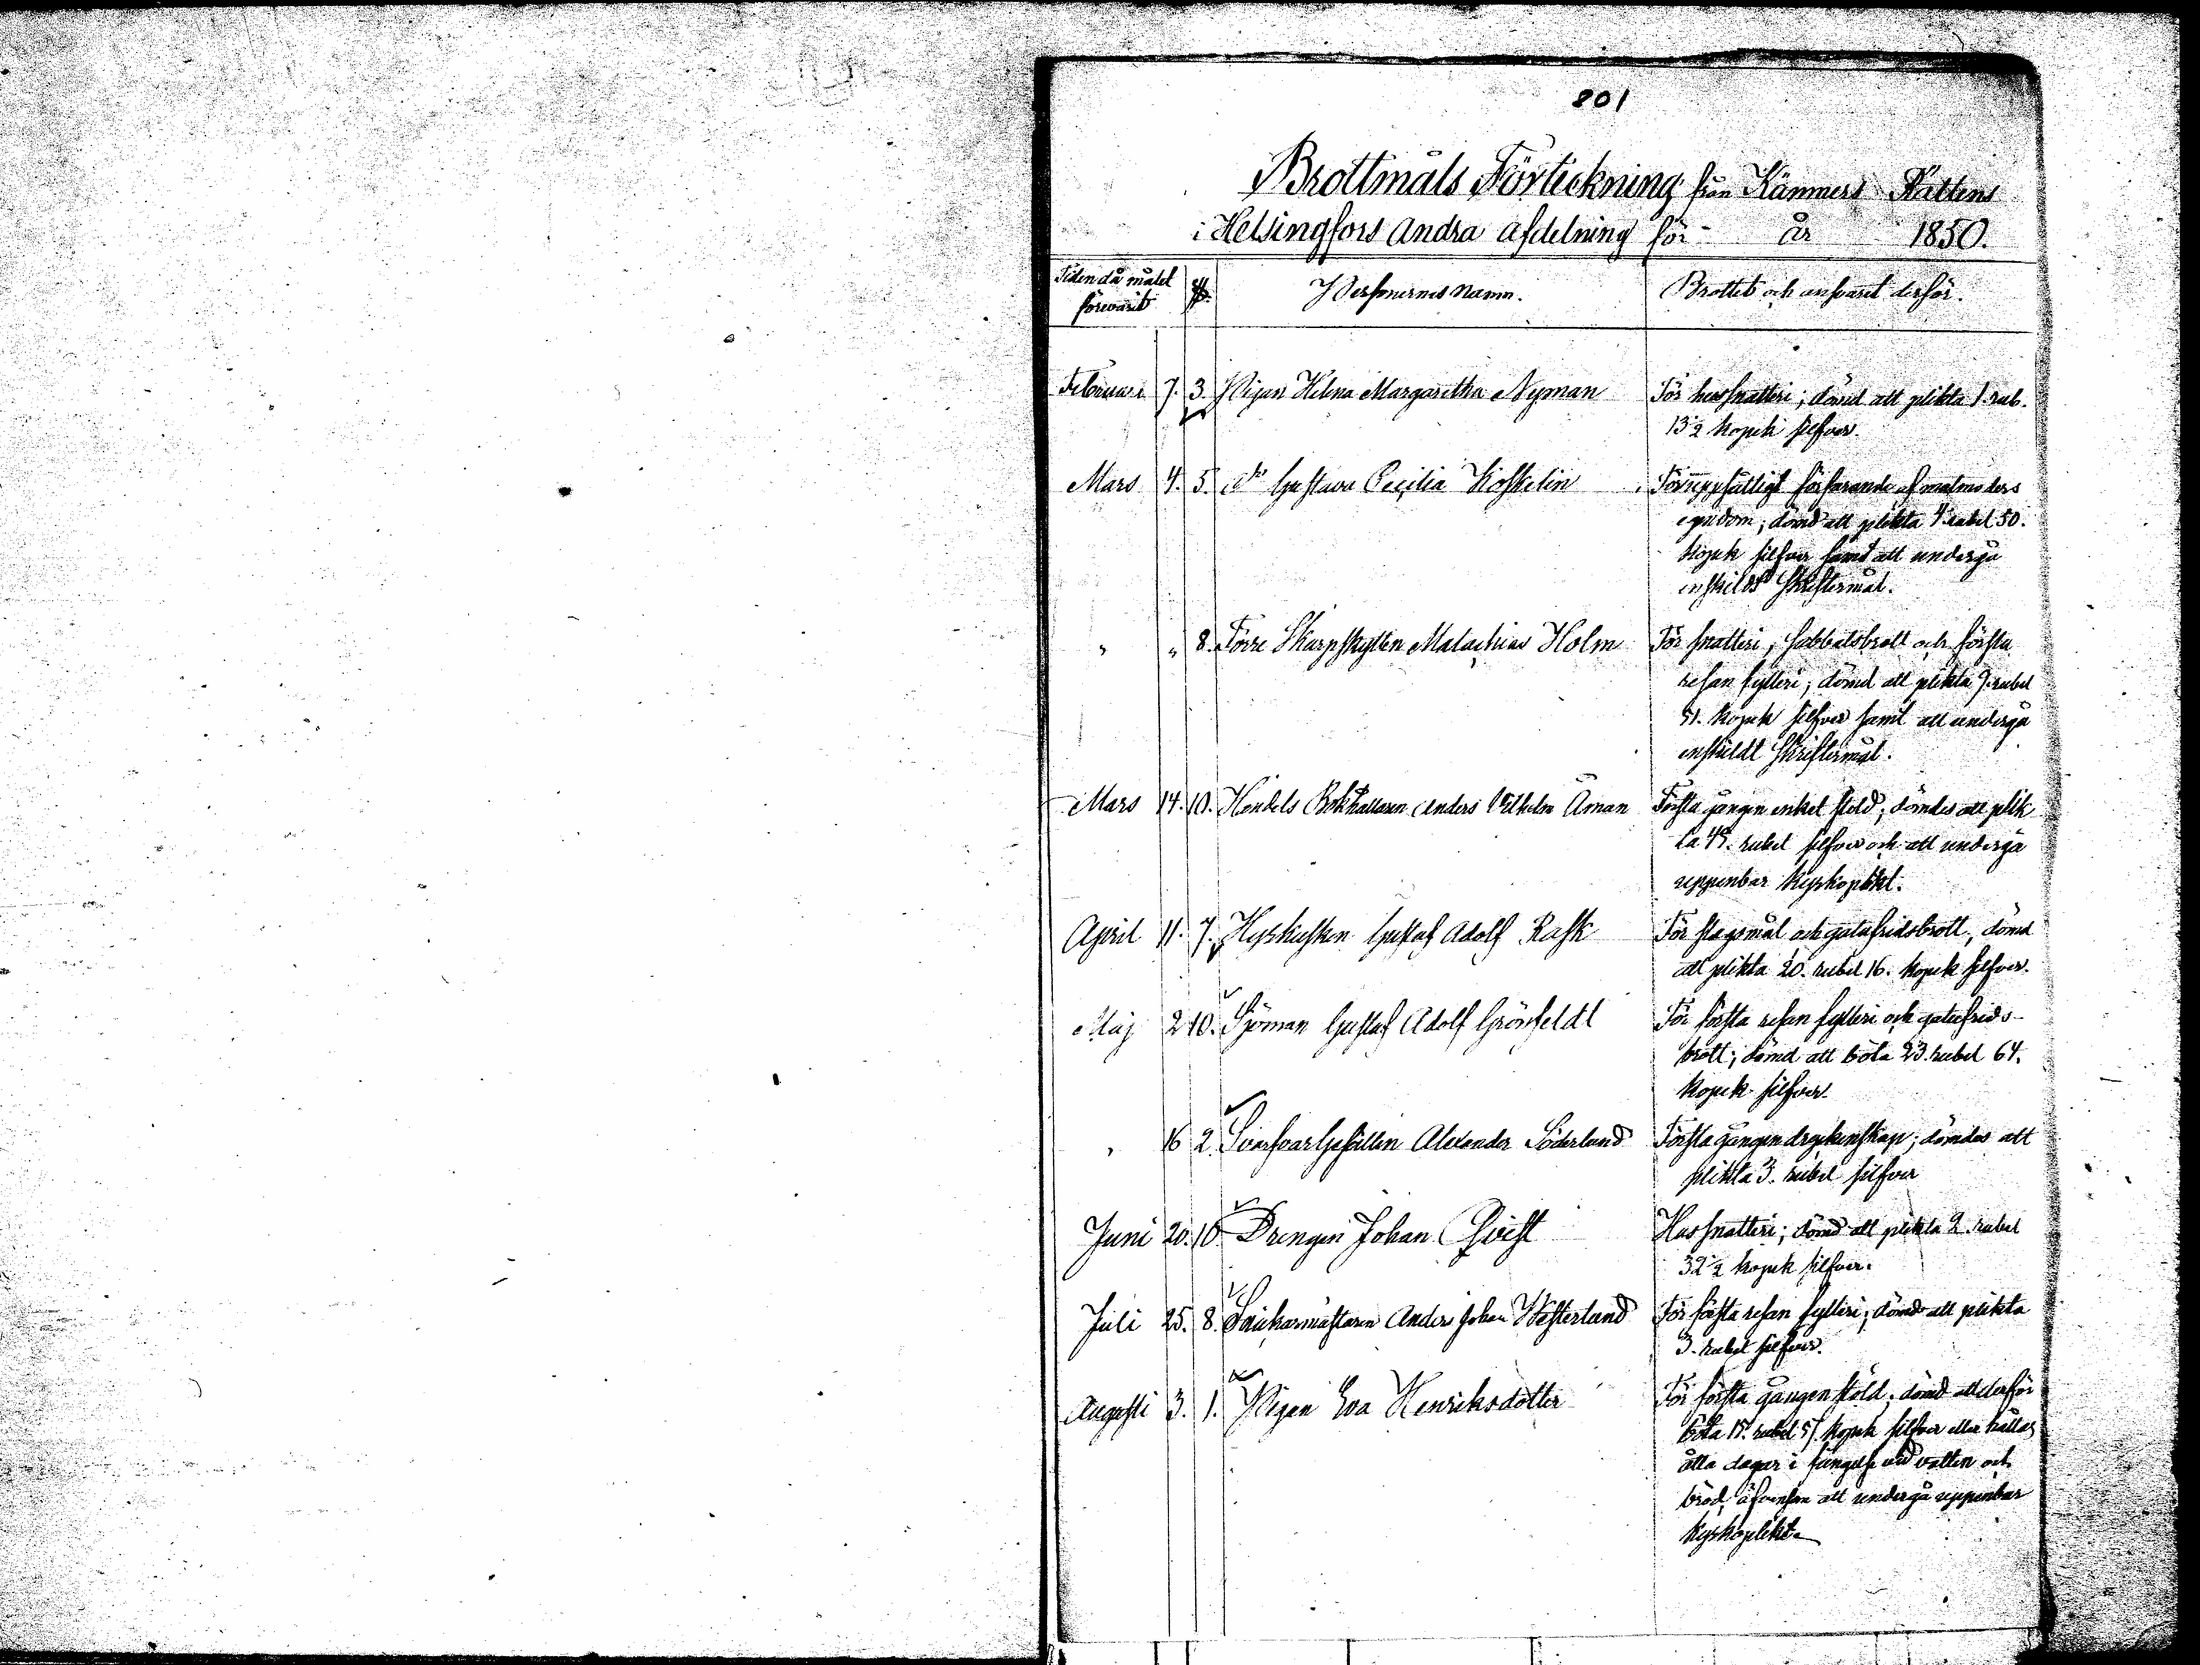 801
Brottmåls Förteckning från Kämners Rättens
i Helsingfors Andra Afdelning för år 1850.
Tiden då målet
förevarit
§§.
Personernes Namn.
Brottet och ansvaret derför.
Februari 7. 3. Pigan Helena Margaretha Nyman
För hussnatteri, dömd att plikta 1. rub.
13½ kopek silfver.
Mars 4. 5. do Gustava Cecilia Koskelin
För uppsåtligt förfarande af matmoders
egendom, dömd att plikta 4 rubel 50.
kopek silfver samt att undergå
enskildt skriftermål.
" " 8. Förre Skarpskytten Malachias Holm
För snatteri, sabbatsbrott och första
resan fylleri, dömd att plikta 9. rubel
51. kopek silfver samt att undergå
enskildt skriftermål.
Mars 14. 10. Handels Bokhållaren Anders Vilhelm Åman
Första gången enkel stöld, dömdes att plik
ta 45. rubel silfver och att undergå
uppenbar kyrkoplikt.
April 11. 7. Hyrkusken Gustaf Adolf Rask
För slagsmål och gatufridsbrott, dömd
att plikta 20. rubel 16. kopek silfver.
Maj 2 10. Sjöman Gustaf Adolf Grönfeldt
För första resan fylleri och gatufrids-
brott; dömd att böta 23. rubel 64.
kopek silfver.
" 16 2. Svarfvar Gesällen Alexander Söderlund
Första gången dryckenskap; dömdes att
plikta 3. rubel silfver
Juni 20. 10 Drengen Johan Qvist
Hussnatteri; dömd att plikta 2. rubel
32½ kopek silfver.
Juli 25. 8. Snickarmästaren Anders Johan Westerlund
För första resan fylleri, dömd att plikta
3. rubel silfver.
Augusti 3. 1. Pigan Eva Henriksdotter
För första gången stöld, dömd att derför
böta 17. rubel 57. kopek silfver eller hållas
åtta dagar i fängelse vid vatten och
bröd, äfvensom att undergå uppenbar
kyrkoplikt.